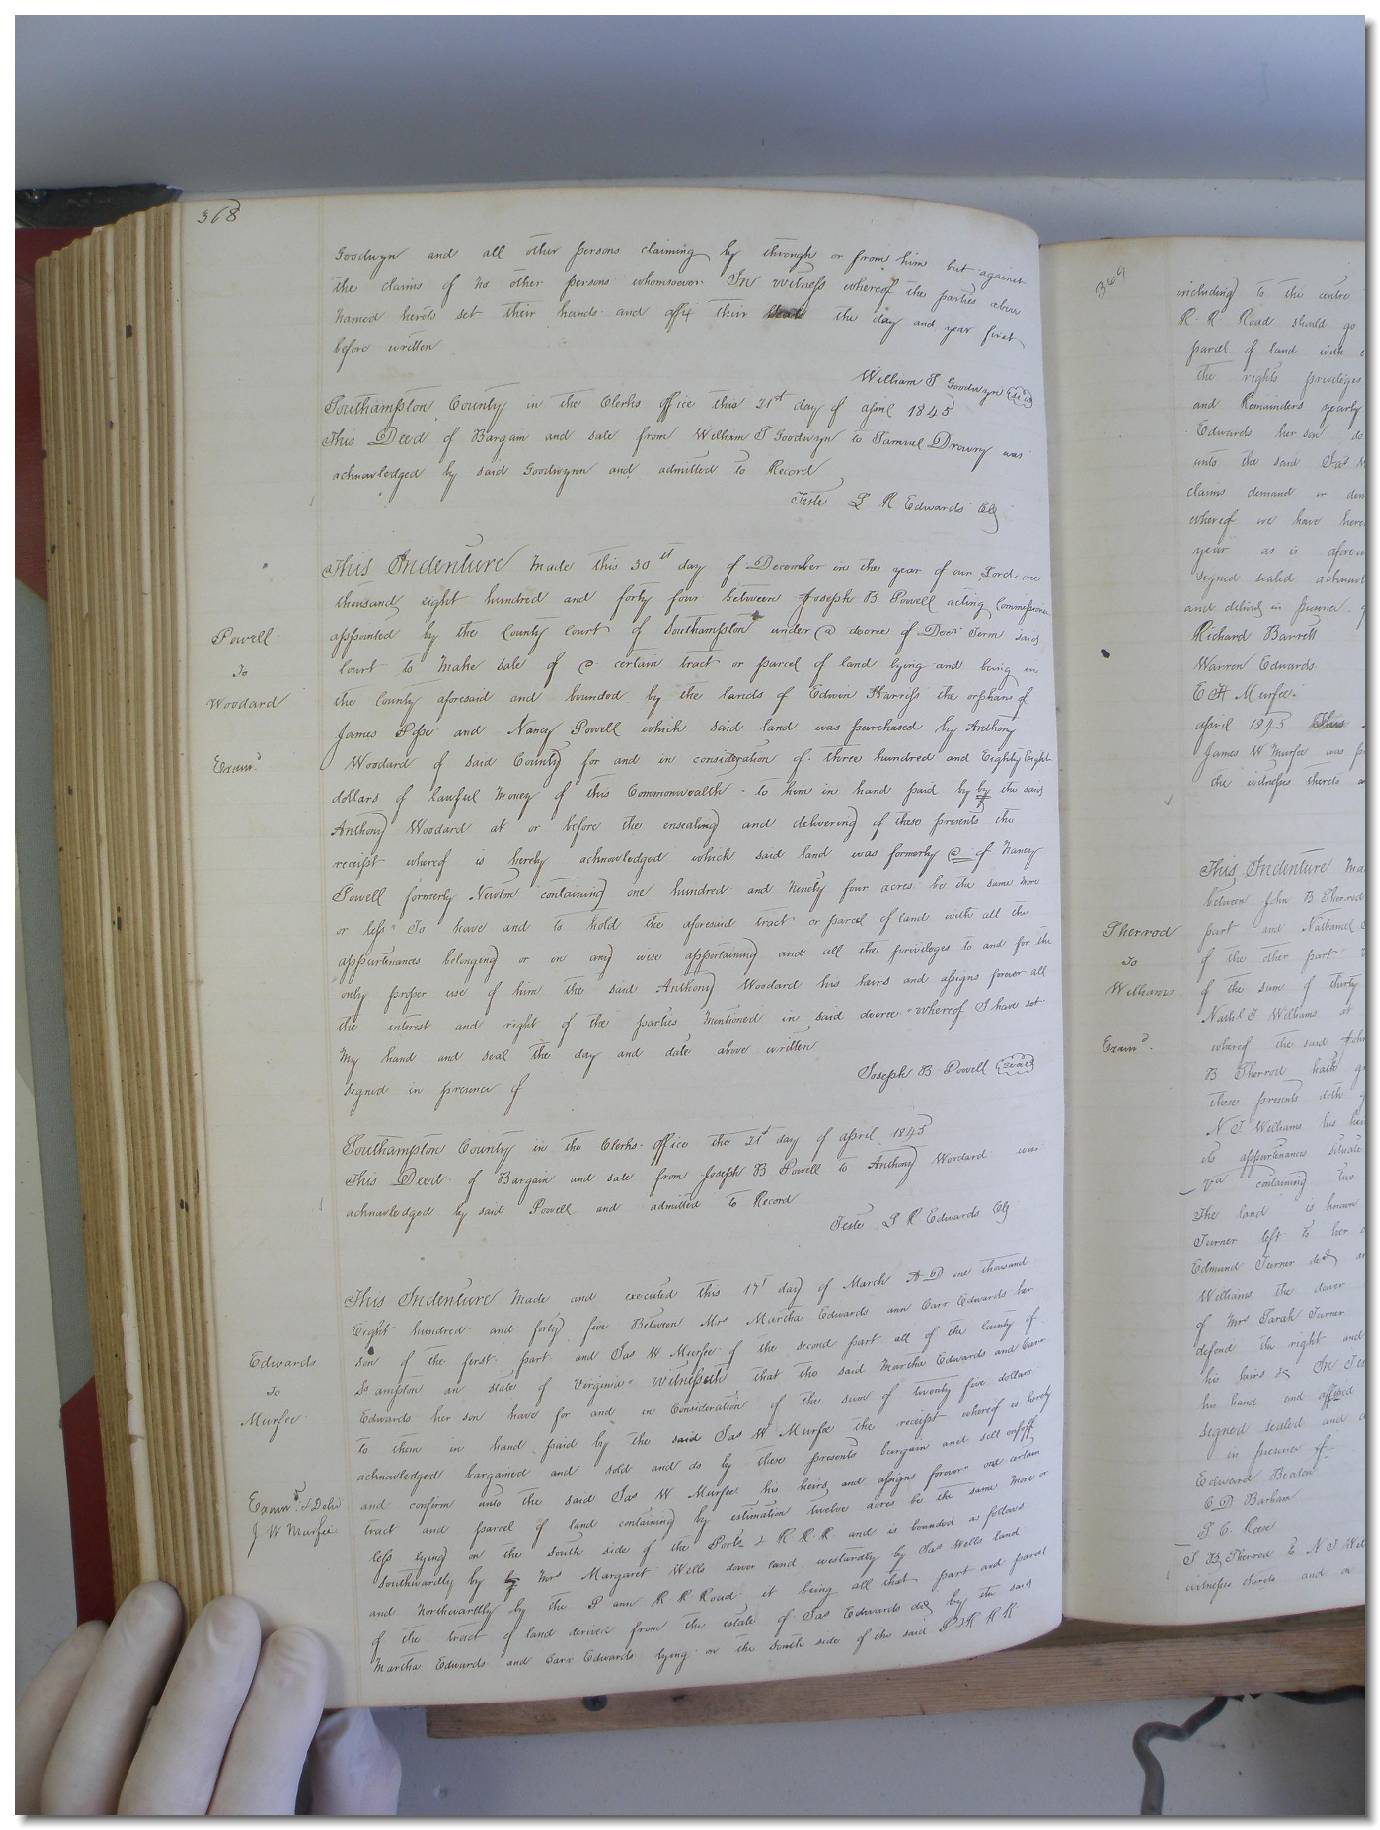 368
Goodwyn and all other persons claiming by through or from him but against
the claims of no other persons whomsoever In witness whereof the parties above
named hereto set their hands and affix their the day and year first
before written
William S Goodwyn (Seal)
Southampton County in the Clerks office this 21st day of april 1845
This Deed of Bargain and sale from William S Goodwyn to Samuel Drewry was
acknowledged by said Goodwynn and admitted to Record
Teste L R Edwards Clk
This Indenture Made this 30th day of December in the year of our Lord one
thousand eight hundred and forty four between Joseph B Powell acting Commissioner
appointed by the County Court of Southampton under a decree of Decr Term said
Powell
Court to Make sale of a certain tract or parcel of land lying and being in
To
the County aforesaid and bounded by the lands of Edwin Harriss the orphans of
Woodard
James Pope and Nancy Powell which said land was purchased by Anthony
Woodard of said County for and in consideration of three hundred and Eighty Eight
Examd
dollars of lawful Money of this Commonwealth to him in hand paid by by the said
Anthony Woodard at or before the ensealing and delivering of these presents the
receipt whereof is hereby acknowledged which said land was formerly of Nancy
Powell formerly Newsom containing one hundred and Ninety four acres be the same more
or less" To have and to hold the aforesaid tract or parcel of land with all the
appurtenances belonging or in any wise appertaining and all the priviloges to and for the
only proper use of him the said Anthony Woodard his heirs and assigns forever all
the interest and right of the parties Mentioned in said decree whereof I have set
My hand and seal the day and date above written
Signed in presence of
Joseph B Powell (Seal)
Southampton County in the Clerks office the 21st day of april 1845
This Deed of Bargain and sale from Joseph B Powell to Anthony Woodard was
acknowledged by said Powell and admitted to Record
Teste L R Edwards Clk
This Indenture Made and executed this 17t day of March A D one thousand
Eight hundred and forty five Between Mrs Martha Edwards ann Carr Edwards her
Edwards
son of the first part and Jas W Murfee of the second part all of the County of
to
So ampton an state of Virginia" Witnesseth that the said Martha Edwards and Carr
Murfee
Edwards her son have for and in Consideration of the sum of twenty five dollars
to them in hand paid by the said Jas W Murfee the receipt whereof is hereby
acknowledged bargained and sold and do by these presents bargain and sell enfeff
Examd & Deld
J W Murfee
and confirm unto the said Jas W Murfee his heirs and assigns forever" one certain
tract and parcel of land containing by estimation twelve acres be the same more or
less lying on the South side of the Ports & R. R. R. and is bounded as follows
Southwardly by by Mrs Margaret Wells dower land westwardly by Jas Wells land
and Northwardly by the P ann R R Road it being all that part and parcel
of the tract of land derived from the estate of Jas Edwards decd by the said
Martha Edwards and Carr Edwards lying on the South side of the said P & R R R
369
including to the centre
R. R. Road should go
parcel of land with
the rights privileges
and Remainders yearly
Edwards her son do
unto the said Jas
claims demand or
whereof we have
year as is
signed sealed
and delivd in presence
Richard Barrett
Warren Edwards
E H Murfee
april 1845
James W Murfee was
the witnesses thereto
This Indenture
between John B Therrod
Therrod
part and Nathaniel
To
of the other part
Williams
of the sum of thirty
Nathl T Williams at
Examd
whereof the said John
B Therrod hath
these presents doth
N T Williams his
its appurtenances situate
Va containing two
The land is known
Turner left to her
Edmund Turner decd
Williams the dower
of Mrs Sarah Turner
defend the right and
his heirs &c In
his hand and affixed
Signed sealed and
in presence of
Edward Beaton
C D Barham
J C. Reese
J B Therrod to N T
witnesses thereto and on